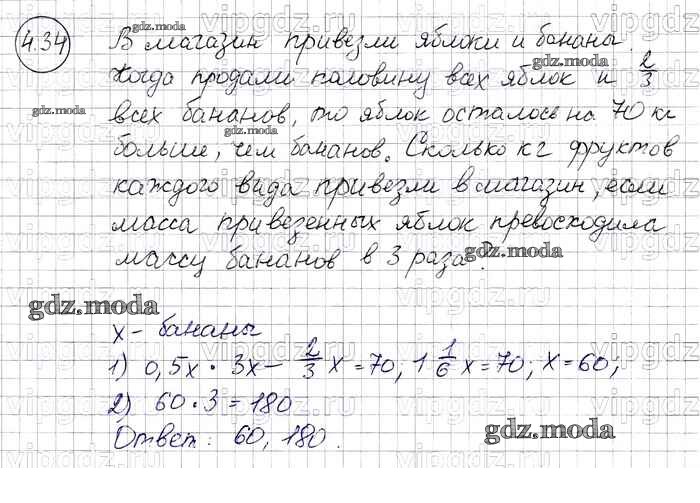 4.34 В магазин привезли яблоки и бананы.
Когда продали половину всех яблок и 2/3
всех бананов, то яблок осталось на 70 кг
больше, чем бананов. Сколько кг фруктов
каждого вида привезли в магазин, если
масса привезенных яблок превосходила
массу бананов в 3 раза?
х - бананы
1) 0,5х · 3х - 2/3 х = 70, 1 1/6 х = 70; х = 60;
2) 60 · 3 = 180
Ответ: 60, 180.
gdz.moda
gdz.moda
gdz.moda
gdz.moda
gdz.moda
gdz.moda
gdz.moda
vipgdz.ru